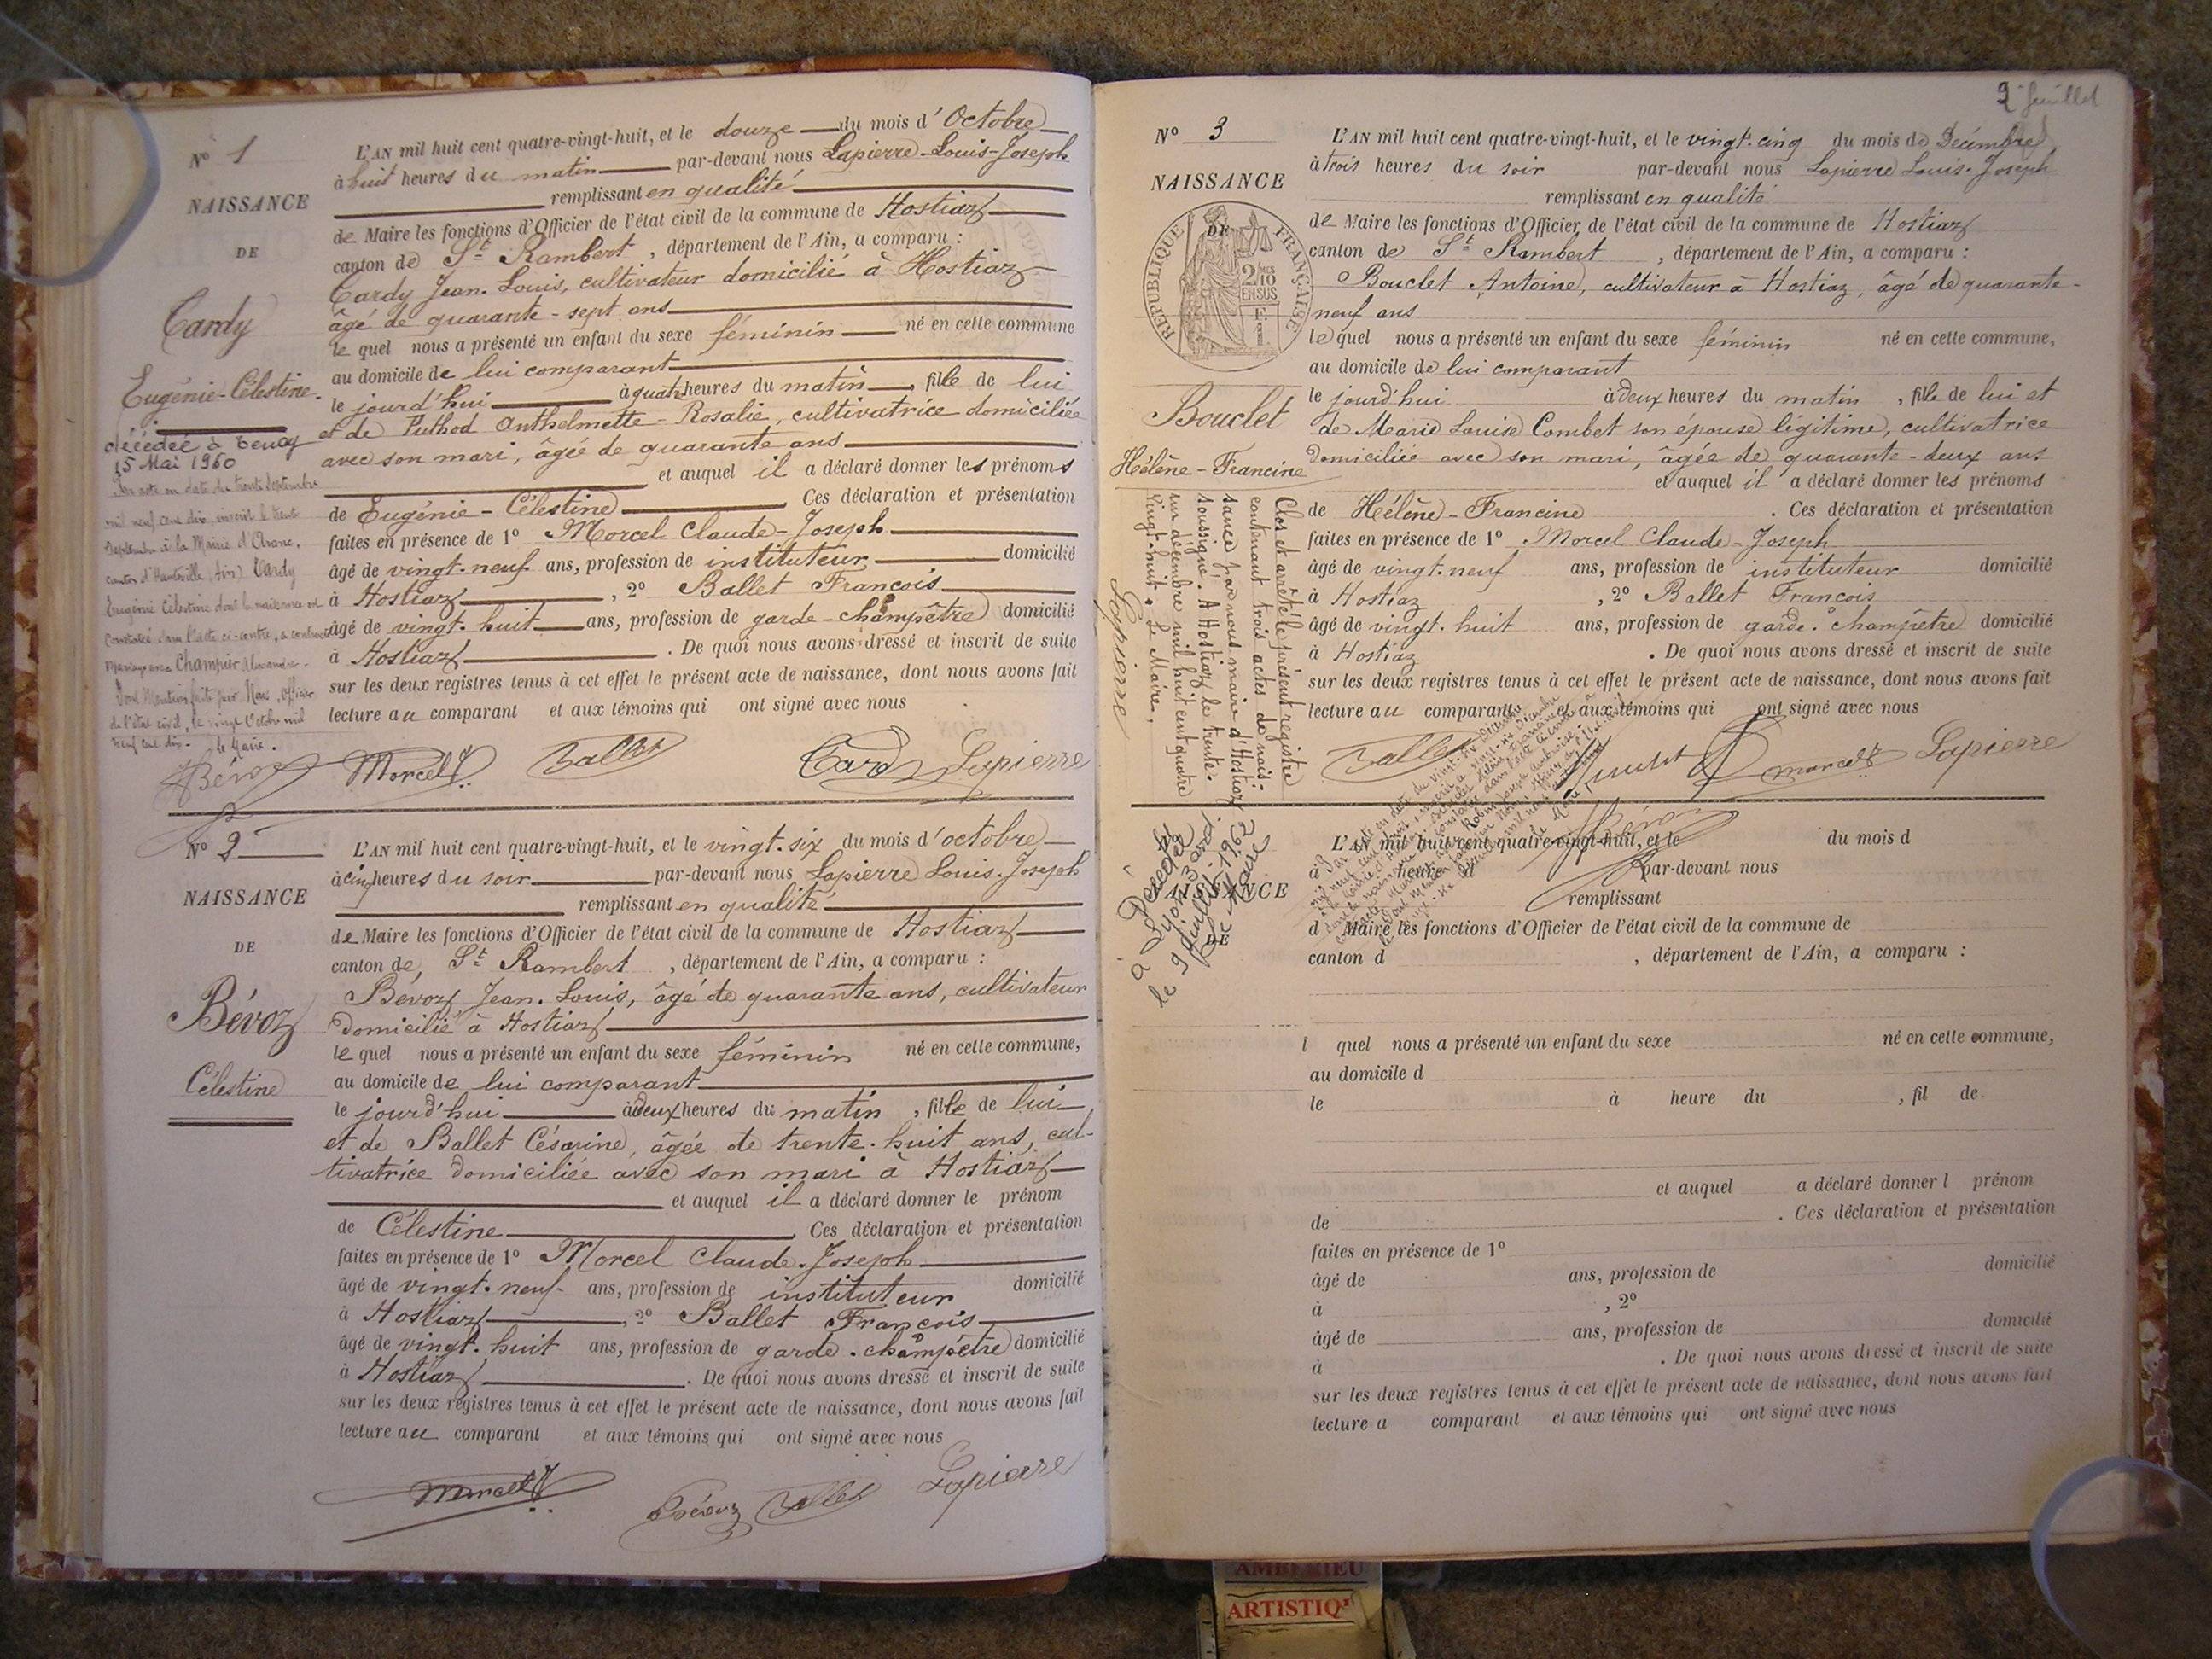 N° 1
NAISSANCE
DE
Cardy
Eugénie-Célestine.
décédée à Tenay
15 Mai 1960
Par acte en date du trente Septembre
mil neuf cent dix, inscrit le trente
Septembre à la Mairie d'Aranc,
canton d'Hauteville (Ain) Cardy
Eugénie Célestine dont la naissance est
constatée dans l'acte ci-contre, a contracté
Mariage avec Champier Alexandre.
Dont Mention faite par Nous, officier
de l'état civil, le vingt Octobre mil
neuf cent dix. le Maire.
L'AN mil huit cent quatre-vingt-huit, et le douze du mois d'Octobre
à huit heures du matin par-devant nous Lapierre Louis-Joseph
remplissant en qualité
de Maire les fonctions d'Officier de l'état civil de la commune de Hostiaz
canton de St Rambert, département de l'Ain, a comparu :
Cardy Jean-Louis, cultivateur domicilié à Hostiaz
âgé de quarante-sept ans
le quel nous a présenté un enfant du sexe féminin né en cette commune
au domicile de lui comparant
le jourd'hui à quatre heures du matin, fille de lui
et de Puthod Anthelmette-Rosalie, cultivatrice domiciliée
avec son mari, âgée de quarante ans
et auquel il a déclaré donner les prénoms
de Eugénie-Célestine Ces déclaration et présentation
faites en présence de 1° Morcel Claude-Joseph
âgé de vingt-neuf ans, profession de instituteur domicilié
à Hostiaz, 2° Ballet François
âgé de vingt-huit ans, profession de garde-champêtre domicilié
à Hostiaz. De quoi nous avons dressé et inscrit de suite
sur les deux registres tenus à cet effet le présent acte de naissance, dont nous avons fait
lecture au comparant et aux témoins qui ont signé avec nous
Bévoz Morcel Ballet Cardy Lapierre
N° 2
NAISSANCE
DE
Bévoz
Célestine
L'AN mil huit cent quatre-vingt-huit, et le vingt-six du mois d'octobre
à cinq heures du soir par-devant nous Lapierre Louis-Joseph
remplissant en qualité
de Maire les fonctions d'Officier de l'état civil de la commune de Hostiaz
canton de St Rambert, département de l'Ain, a comparu :
Bévoz Jean-Louis, âgé de quarante ans, cultivateur
domicilié à Hostiaz
le quel nous a présenté un enfant du sexe féminin né en cette commune,
au domicile de lui comparant
le jourd'hui à deux heures du matin, fille de lui
et de Ballet Césarine, âgée de trente-huit ans, cul-
tivatrice domiciliée avec son mari à Hostiaz
et auquel il a déclaré donner le prénom
de Célestine Ces déclaration et présentation
faites en présence de 1° Morcel Claude-Joseph
âgé de vingt-neuf ans, profession de instituteur domicilié
à Hostiaz, 2° Ballet François
âgé de vingt-huit ans, profession de garde-champêtre domicilié
à Hostiaz. De quoi nous avons dressé et inscrit de suite
sur les deux registres tenus à cet effet le présent acte de naissance, dont nous avons fait
lecture au comparant et aux témoins qui ont signé avec nous
Morcel Bévoz Ballet Lapierre
2e feuillet
N° 3
NAISSANCE
DE
RÉPUBLIQUE FRANÇAISE
2 10
EN SUS
Bouclet
Hélène-Francine
Clos et arrêté le présent registre
contenant trois actes de nais-
sance par nous maire d'Hostiaz
soussigné. A Hostiaz le trente-
un décembre mil huit cent quatre
vingt-huit. Le Maire,
Lapierre
L'AN mil huit cent quatre-vingt-huit, et le vingt-cinq du mois de Décembre
à trois heures du soir par-devant nous Lapierre Louis-Joseph
remplissant en qualité
de Maire les fonctions d'Officier de l'état civil de la commune de Hostiaz
canton de St Rambert, département de l'Ain, a comparu :
Bouclet Antoine, cultivateur à Hostiaz, âgé de quarante-
neuf ans
le quel nous a présenté un enfant du sexe féminin né en cette commune,
au domicile de lui comparant
le jourd'hui à deux heures du matin, fille de lui et
de Marie Louise Combet son épouse légitime, cultivatrice
domiciliée avec son mari, âgée de quarante-deux ans
et auquel il a déclaré donner les prénoms
de Hélène-Francine. Ces déclaration et présentation
faites en présence de 1° Morcel Claude-Joseph
âgé de vingt-neuf ans, profession de instituteur domicilié
à Hostiaz, 2° Ballet François
âgé de vingt-huit ans, profession de garde-champêtre domicilié
à Hostiaz. De quoi nous avons dressé et inscrit de suite
sur les deux registres tenus à cet effet le présent acte de naissance, dont nous avons fait
lecture au comparant et aux témoins qui ont signé avec nous
Ballet Morcel Lapierre
Décédée
à Lyon 3 ard.
le 9 Juillet 1962
Le Maire
L'AN mil huit cent quatre-vingt-huit, et le du mois d
à heure d par-devant nous
NAISSANCE
remplissant
DE
d Maire les fonctions d'Officier de l'état civil de la commune de
canton d , département de l'Ain, a comparu :
l quel nous a présenté un enfant du sexe né en cette commune,
au domicile d
le à heure du , fil de
et auquel a déclaré donner l prénom
de . Ces déclaration et présentation
faites en présence de 1°
âgé de ans, profession de domicilié
à , 2°
âgé de ans, profession de domicilié
à . De quoi nous avons dressé et inscrit de suite
sur les deux registres tenus à cet effet le présent acte de naissance, dont nous avons fait
lecture a comparant et aux témoins qui ont signé avec nous
AMBERIEU
ARTISTIQ